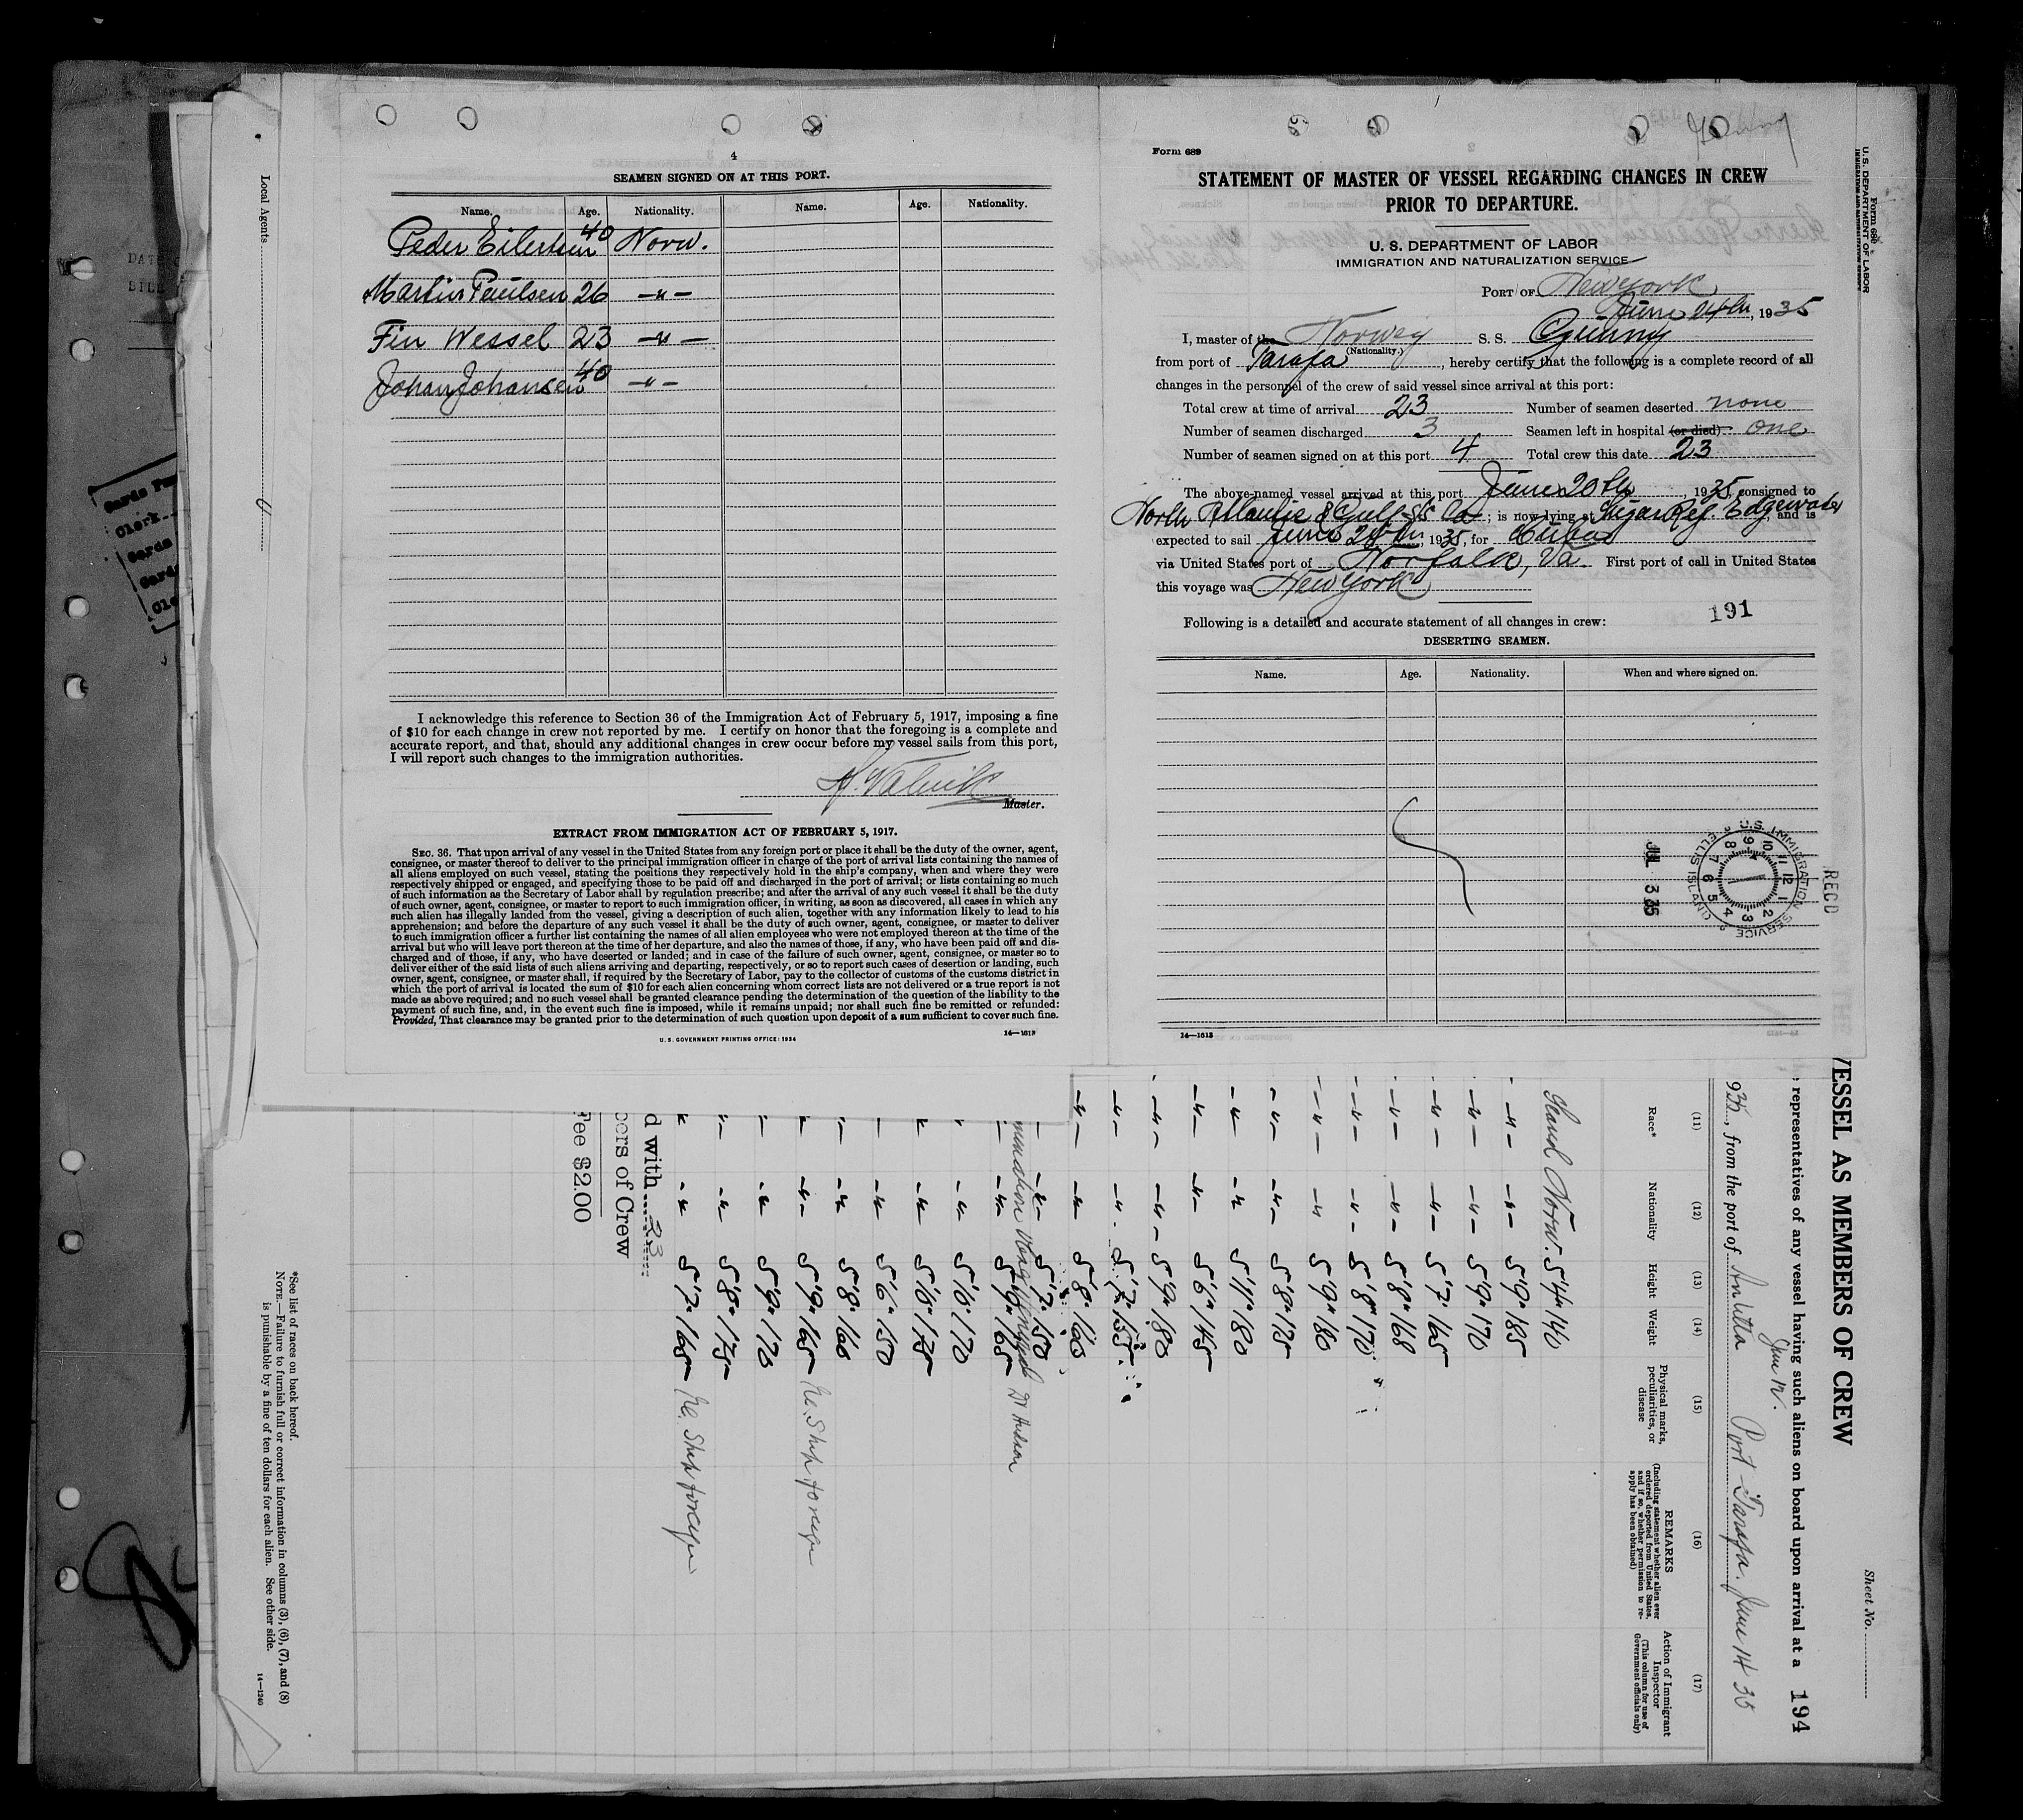 4
SEAMEN SIGNED ON AT THIS PORT.
Name. Age. Nationality. Name. Age. Nationality.
Peder Eilertsen 40 Norw.
Martin Paulsen 26 —"—
Fin Wessel 23 —"—
Johan Johansen 40 —"—
I acknowledge this reference to Section 36 of the Immigration Act of February 5, 1917, imposing a fine
of $10 for each change in crew not reported by me. I certify on honor that the foregoing is a complete and
accurate report, and that, should any additional changes in crew occur before my vessel sails from this port,
I will report such changes to the immigration authorities.
Master.
EXTRACT FROM IMMIGRATION ACT OF FEBRUARY 5, 1917.
SEC. 36. That upon arrival of any vessel in the United States from any foreign port or place it shall be the duty of the owner, agent,
consignee, or master thereof to deliver to the principal immigration officer in charge of the port of arrival lists containing the names of
all aliens employed on such vessel, stating the positions they respectively hold in the ship's company, when and where they were
respectively shipped or engaged, and specifying those to be paid off and discharged in the port of arrival; or lists containing so much
of such information as the Secretary of Labor shall by regulation prescribe; and after the arrival of any such vessel it shall be the duty
of such owner, agent, consignee, or master to report to such immigration officer, in writing, as soon as discovered, all cases in which any
such alien has illegally landed from the vessel, giving a description of such alien, together with any information likely to lead to his
apprehension; and before the departure of any such vessel it shall be the duty of such owner, agent, consignee, or master to deliver
to such immigration officer a further list containing the names of all alien employees who were not employed thereon at the time of the
arrival but who will leave port thereon at the time of her departure, and also the names of those, if any, who have been paid off and dis-
charged and of those, if any, who have deserted or landed; and in case of the failure of such owner, agent, consignee, or master so to
deliver either of the said lists of such aliens arriving and departing, respectively, or so to report such cases of desertion or landing, such
owner, agent, consignee, or master shall, if required by the Secretary of Labor, pay to the collector of customs of the customs district in
which the port of arrival is located the sum of $10 for each alien concerning whom correct lists are not delivered or a true report is not
made as above required; and no such vessel shall be granted clearance pending the determination of the question of the liability to the
payment of such fine, and, in the event such fine is imposed, while it remains unpaid; nor shall such fine be remitted or refunded:
Provided, That clearance may be granted prior to the determination of such question upon deposit of a sum sufficient to cover such fine.
U.S. GOVERNMENT PRINTING OFFICE: 1934 14—1613
Form 689
STATEMENT OF MASTER OF VESSEL REGARDING CHANGES IN CREW
PRIOR TO DEPARTURE.
U. S. DEPARTMENT OF LABOR
IMMIGRATION AND NATURALIZATION SERVICE
PORT OF New York
June 24th, 1935
I, master of the Norweg S. S. Gunny
(Nationality.)
from port of Tarafa, hereby certify that the following is a complete record of all
changes in the personnel of the crew of said vessel since arrival at this port:
Total crew at time of arrival 23 Number of seamen deserted none
Number of seamen discharged 3 Seamen left in hospital (or died) one
Number of seamen signed on at this port 4 Total crew this date 23
The above-named vessel arrived at this port June 20th, 1935, consigned to
North Atlantic & Gulf SS Co; is now lying at Sugar Ref. Edgewater, and is
expected to sail June 24th, 1935, for Cuba
via United States port of Norfolk, Va First port of call in United States
this voyage was New York
191
Following is a detailed and accurate statement of all changes in crew:
DESERTING SEAMEN.
Name. Age. Nationality. When and where signed on.
REC'D
U.S. IMMIGRATION SERVICE ELLIS ISLAND
JUL 3 35
14—1613
Form 689
U. S. DEPARTMENT OF LABOR
IMMIGRATION AND NATURALIZATION SERVICE
Local Agents
Clerk
Sheet No.
VESSEL AS MEMBERS OF CREW
representatives of any vessel having such aliens on board upon arrival at a 194
June 12.
935, from the port of Antilla Port Tarafa. June 14 35
(11) (12) (13) (14) (15) (16) (17)
Race* Nationality Height Weight Physical marks, peculiarities, or disease
REMARKS
(Including statement whether alien ever ordered deported from United States, and if so, whether permission to re-apply has been obtained)
Action of Immigrant Inspector
(This column for use of Government officials only)
Scand Norw. 5'4" 140
-"- -"- 5'9" 185
-"- -"- 5'9" 170
-"- -"- 5'7" 165
-"- -"- 5'8" 168
-"- -"- 5'8" 170
-"- -"- 5'9" 180
-"- -"- 5'8" 175
-"- -"- 5'11" 180
-"- -"- 5'6" 145
-"- -"- 5'9" 180
-"- -"- 5'7" 155
-"- -"- 5'8" 160
-"- -"- 5'7" 150
-"- -"- 5'9" 165
-"- -"- 5'6" 170
-"- -"- 5'6" 175
-"- -"- 5'6" 150
-"- -"- 5'8" 166
-"- -"- 5'9" 165
-"- -"- 5'9" 170
-"- -"- 5'8" 175
-"- -"- 5'7" 165
d with 23
cers of Crew
Fee $2.00
*See list of races on back hereof.
NOTE.—Failure to furnish full or correct information in columns (3), (6), (7), and (8)
is punishable by a fine of ten dollars for each alien. See other side.
14—1240